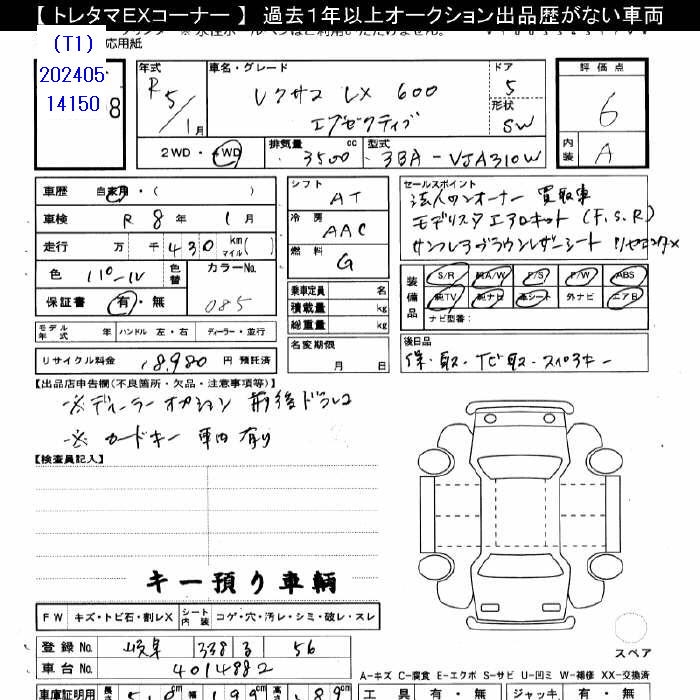 【 トレタマEXコーナー 】 過去１年以上オークション出品歴がない車両
(T1)
応用紙
202405
14150
8
年式
R5/1月
車名・グレード
レクサス LX 600
エグゼクティブ
ドア
5
形状
SW
評価点
6
内装
A
2WD・4WD
排気量
3500 cc
型式
3BA-VJA310W
車歴
自家用・( )
車検
R 8 年 1 月
走行
万 千 430 km マイル( )
色
パール
色替
カラーNo.
085
保証書
有・無
シフト
AT
冷房
AAC
燃料
G
乗車定員 名
積載量 kg
総重量 kg
セールスポイント
法人ワンオーナー 買取車
モデリスタエアロキット (F.S.R)
サンフレアブラウンレザーシート
装備品
S/R
純A/W
P/S
P/W
ABS
純TV
純ナビ
革シート
外ナビ
エアB
ナビ型番：
モデル 年式 年
ハンドル 左・右
ディーラー・並行
リサイクル料金
18,980 円 預託済
名変期限
月 日
後日品
保・取・ナビ取・スペアキー
【出品店申告欄(不良箇所・欠品・注意事項等)】
※ディーラーオプション 前後ドラレコ
※カードキー 車内有り
【検査員記入】
キー預り車輌
FW
キズ・トビ石・割レX
シート内装
コゲ・穴・汚レ・シミ・破レ・スレ
登録No.
岐阜 338 る 56
車台No.
4014882
スペア
A-キズ C-腐食 E-エクボ S-サビ U-凹ミ W-補修 XX-交換済
車庫証明用
工具
有・無
ジャッキ
有・無